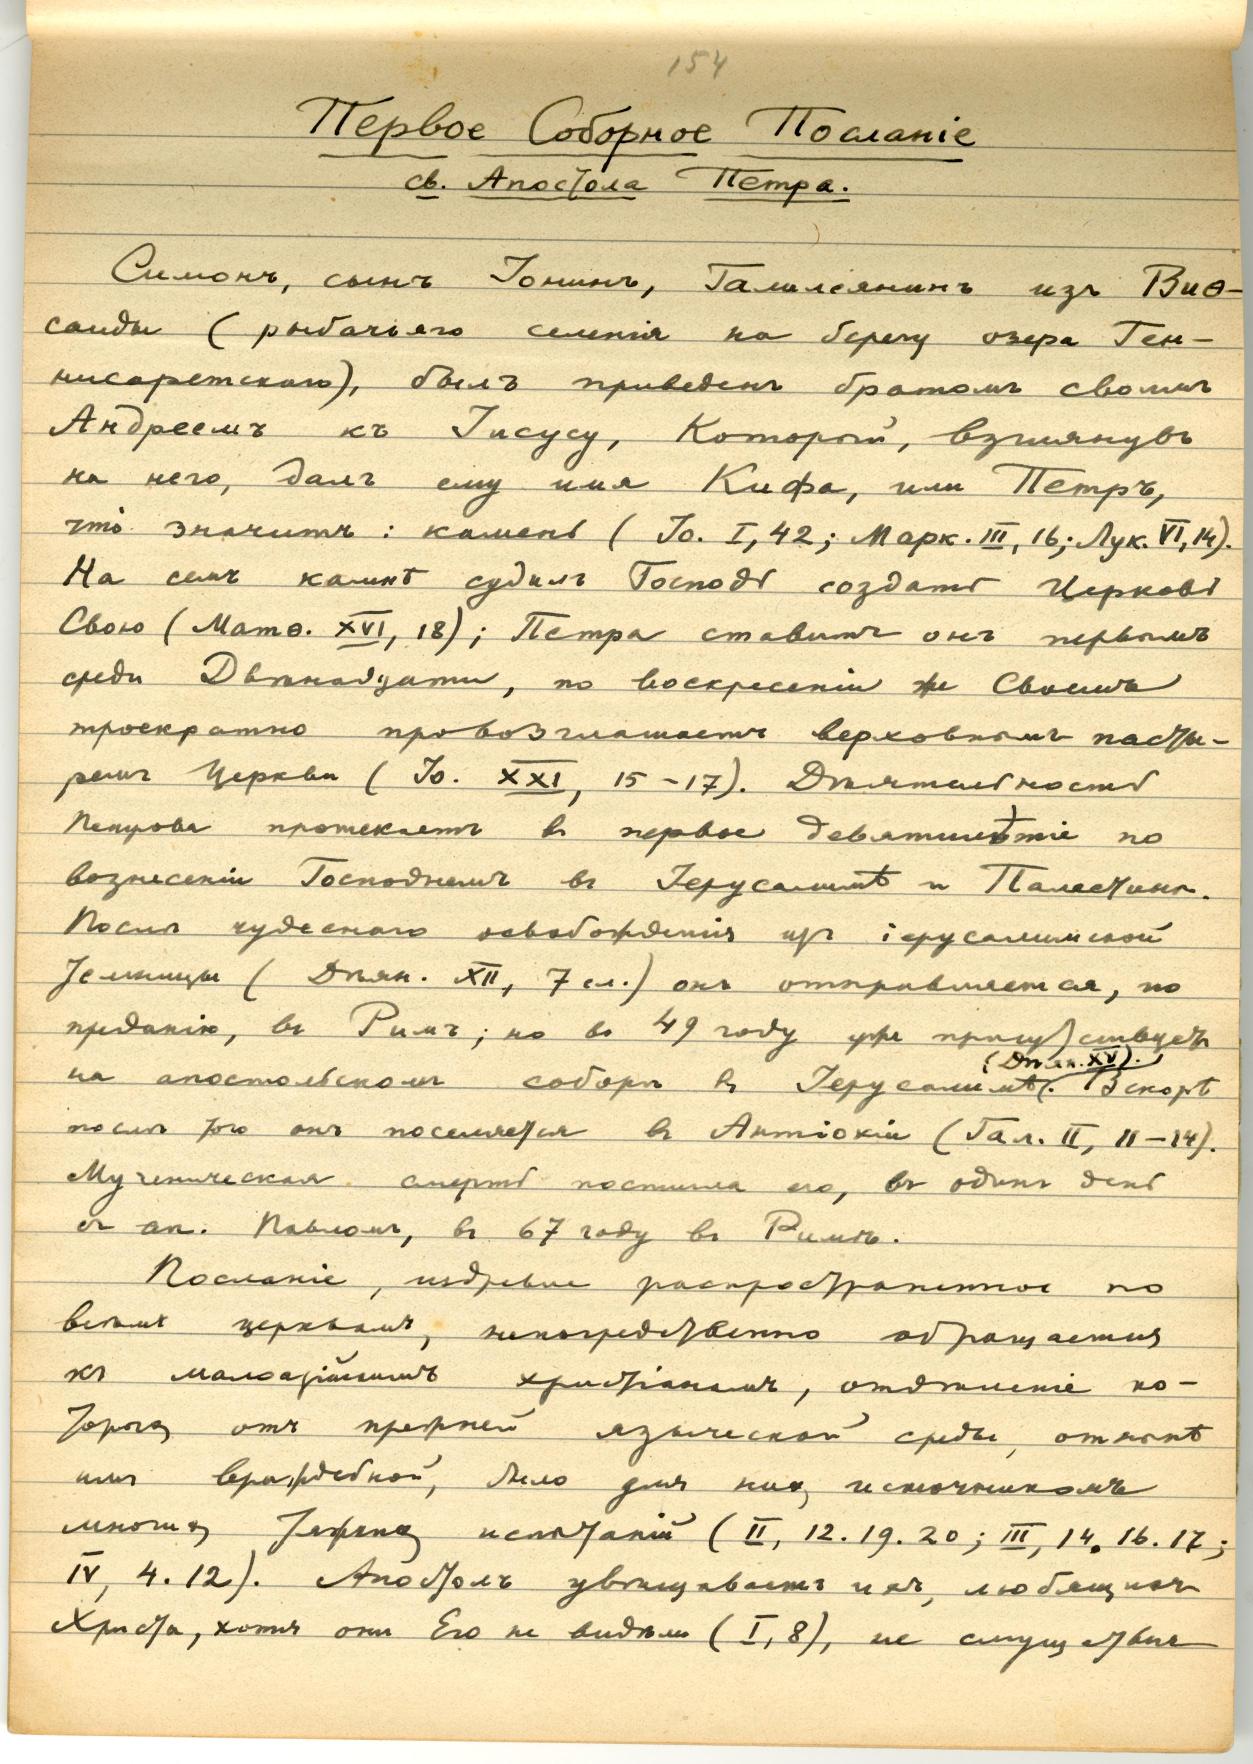 154
Первое Соборное Посланіе
св. Апостола Петра.
Симонъ, сынъ Іонинъ, Галилеянинъ изъ Виѳ-
саиды (рыбачьяго селенія на берегу озера Ген-
нисаретскаго), былъ приведенъ братомъ своимъ
Андреемъ къ Іисусу, Который, взглянувъ
на него, далъ ему имя Кифа, или Петръ,
что значитъ: камень (Іо. I, 42; Марк. III, 16; Лук. VI, 14).
На семъ камнѣ судилъ Господь создать Церковь
Свою (Матѳ. XVI, 18); Петра ставитъ онъ первымъ
среди Двѣнадцати, по воскресеніи же Своемъ
троекратно провозглашаетъ верховнымъ пасты-
ремъ Церкви (Іо. XXI, 15-17). Дѣятельность
Петрова протекаетъ въ первое девятилѣтіе по
вознесеніи Господнемъ въ Іерусалимѣ и Палестинѣ.
Послѣ чудеснаго освобожденія изъ іерусалимской
темницы (Дѣян. XII, 7 сл.) онъ отправляется, по
преданію, въ Римъ; но въ 49 году уже присутствуетъ
на апостольскомъ соборѣ въ Іерусалимѣ (Дѣян. XV). Вскорѣ
послѣ того онъ поселяется въ Антіохіи (Гал. II, 11-14).
Мученическая смерть постигла его, въ одинъ день
съ ап. Павломъ, въ 67 году въ Римѣ.
Посланіе, издревле распространенное по
всѣмъ церквамъ, непосредственно обращается
къ малоазійскимъ христіанамъ, отдѣленіе ко-
торыхъ отъ прежней языческой среды, отнынѣ
имъ враждебной, было для нихъ источникомъ
многихъ тяжкихъ испытаній (II, 12. 19. 20; III, 14. 16. 17;
IV, 4. 12). Апостолъ увѣщаваетъ ихъ, любящихъ
Христа, хотя они Его не видѣли (I, 8), не смущаться